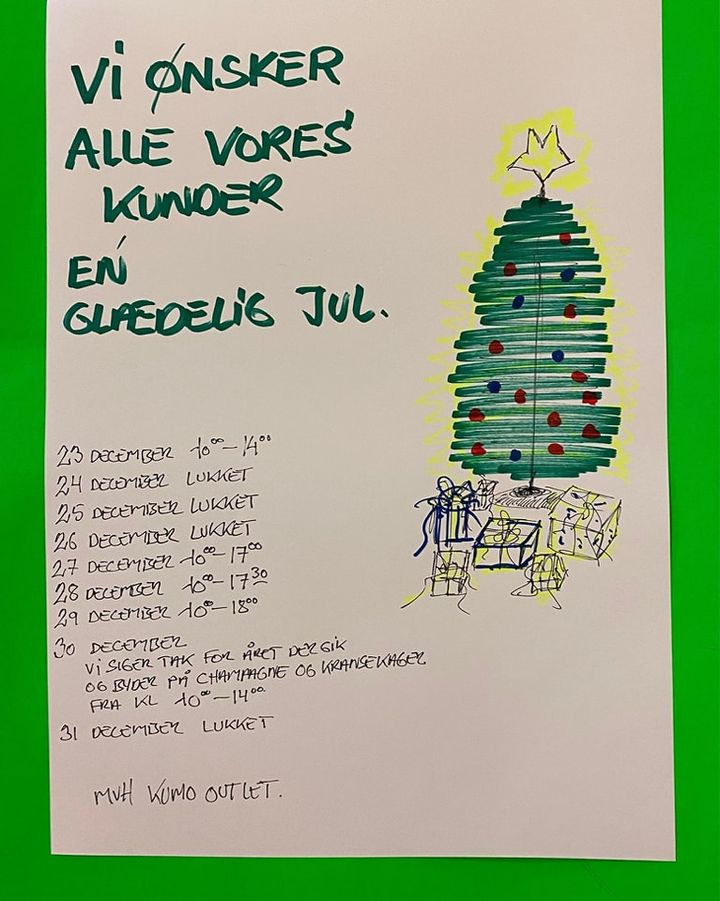 VI ØNSKER
ALLE VORES
KUNDER
EN
GLÆDELIG JUL.
23 DECEMBER 10⁰⁰ - 14⁰⁰
24 DECEMBER LUKKET
25 DECEMBER LUKKET
26 DECEMBER LUKKET
27 DECEMBER 10⁰⁰ - 17⁰⁰
28 DECEMBER 10⁰⁰ - 17³⁰
29 DECEMBER 10⁰⁰ - 18⁰⁰
30 DECEMBER
VI SIGER TAK FOR ÅRET DER GIK
OG BYDER PÅ CHAMPAGNE OG KRANSEKAGER
FRA KL 10⁰⁰ - 14⁰⁰.
31 DECEMBER LUKKET
MVH KUMO OUTLET.